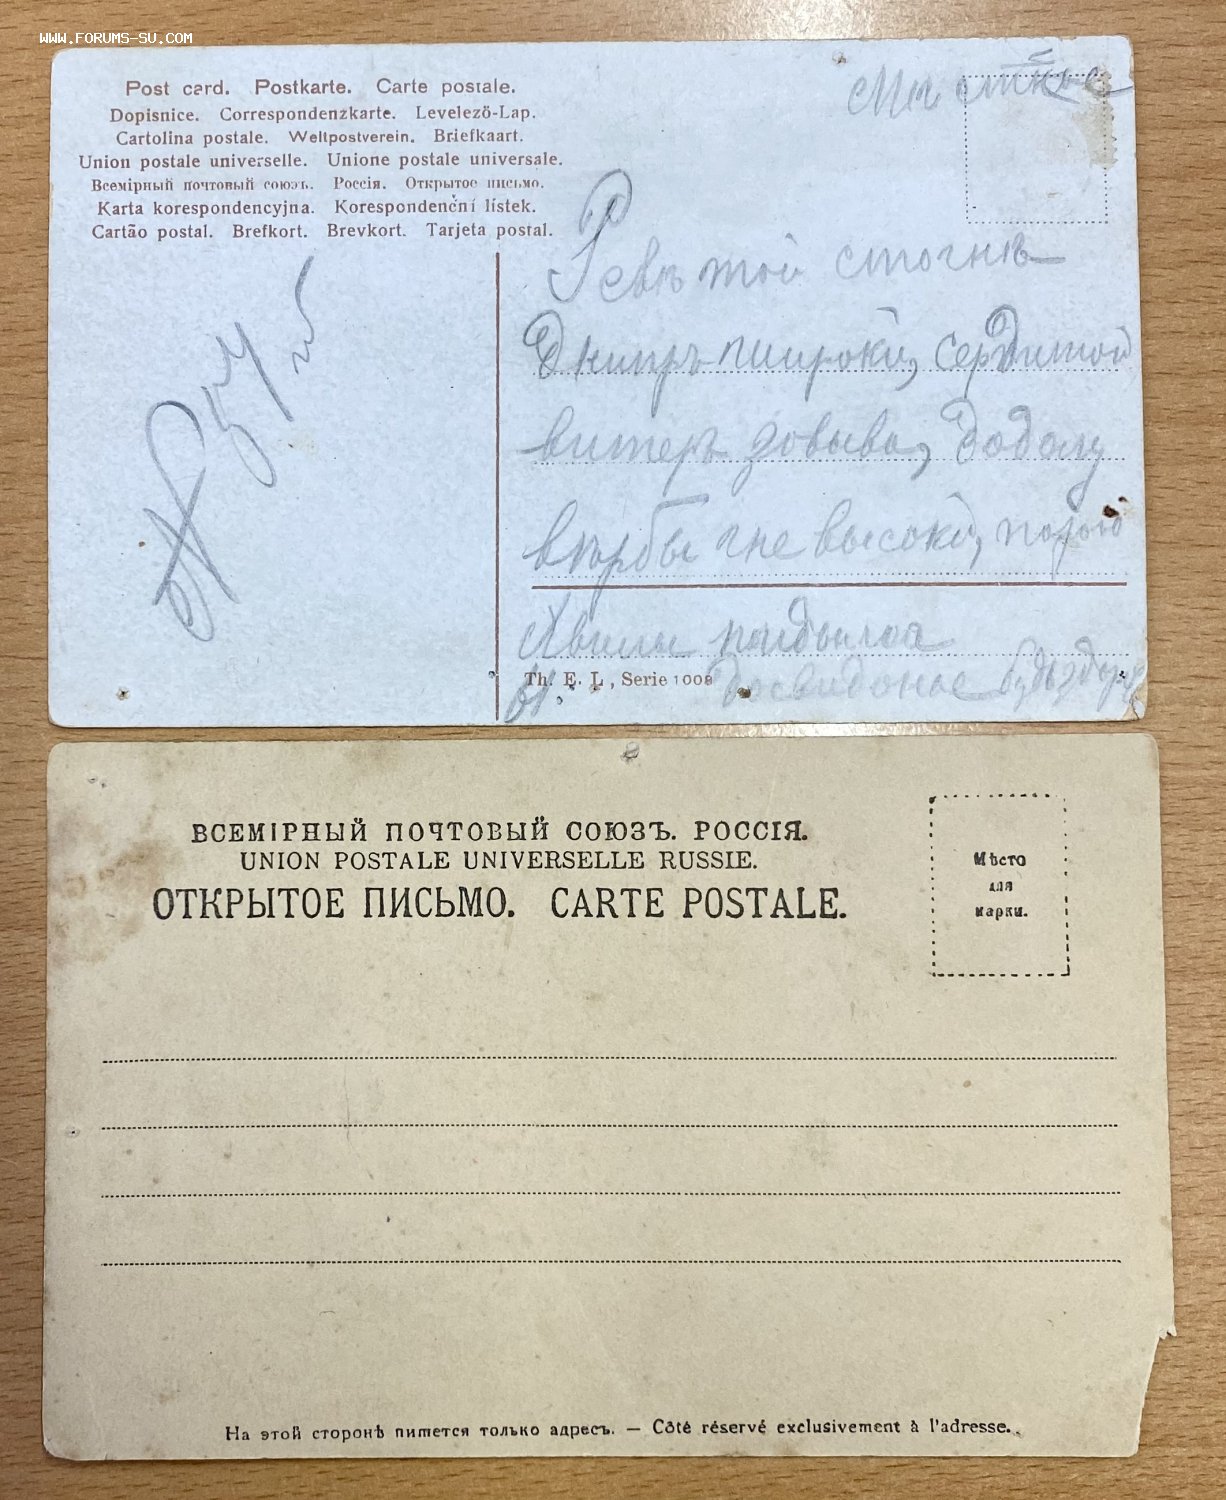 WWW.FORUMS-SU.COM
Post card. Postkarte. Carte postale.
Dopisnice. Correspondenzkarte. Levelező-Lap.
Cartolina postale. Weltpostverein. Briefkaart.
Union postale universelle. Unione postale universale.
Всемірный почтовый союзъ. Россія. Открытое письмо.
Karta korespondencyjna. Korespondenční lístek.
Cartão postal. Brefkort. Brevkort. Tarjeta postal.
Местное
Реве той стогне
Днипръ широки, сердитой
витеръ завыва, додолу
вербы гне высоки, горою
Хвили
Th. E. L., Serie 1008
досвиданье
ВСЕМІРНЫЙ ПОЧТОВЫЙ СОЮЗЪ. РОССІЯ.
UNION POSTALE UNIVERSELLE RUSSIE.
ОТКРЫТОЕ ПИСЬМО. CARTE POSTALE.
Мѣсто
для
марки.
На этой сторонѣ пишется только адресъ. — Côté réservé exclusivement à l'adresse.